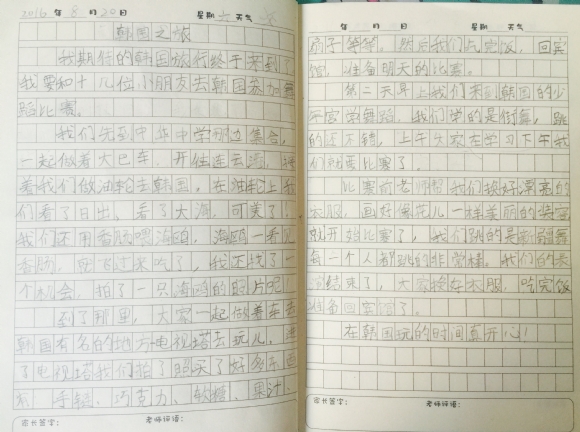 2016 年 8 月 20 日 星期 六 天气
韩国之旅
我期待的韩国旅行终于来到了
我要和十几位小朋友去韩国参加舞
蹈比赛。
我们先到中华中学那边集合,
一起做着大巴车,开往连云港,接
着我们做油轮去韩国,在油轮上我
们看了日出,看了大海,可美了!
我们还用香肠喂海鸥,海鸥一看见
香肠,就飞过来吃了,我还找了一
个机会,拍了一只海鸥的照片呢!
到了那里,大家一起做着车去
韩国有名的地方电视塔去玩儿,进
了电视塔我们拍了照买了好多东西
手链、巧克力、软糖、果汁、
年 月 日 星期 天气
扇子等等。然后我们吃完饭,回宾
馆,准备明天的比赛。
第二天早上我们来到韩国的少
年宫学舞蹈,我们学的是街舞,跳
的还不错,上午大家在学习下午我
们就要比赛了。
比赛前老师帮我们换好漂亮的
衣服,画好像花儿一样美丽的妆容
就开始比赛了,我们跳的是新疆舞
每一个人都跳的非常棒。我们的表
演结束了,大家换好衣服,吃完饭
准备回宾馆了。
在韩国玩的时间真开心!
家长签字: 老师评语:
家长签字: 老师评语: